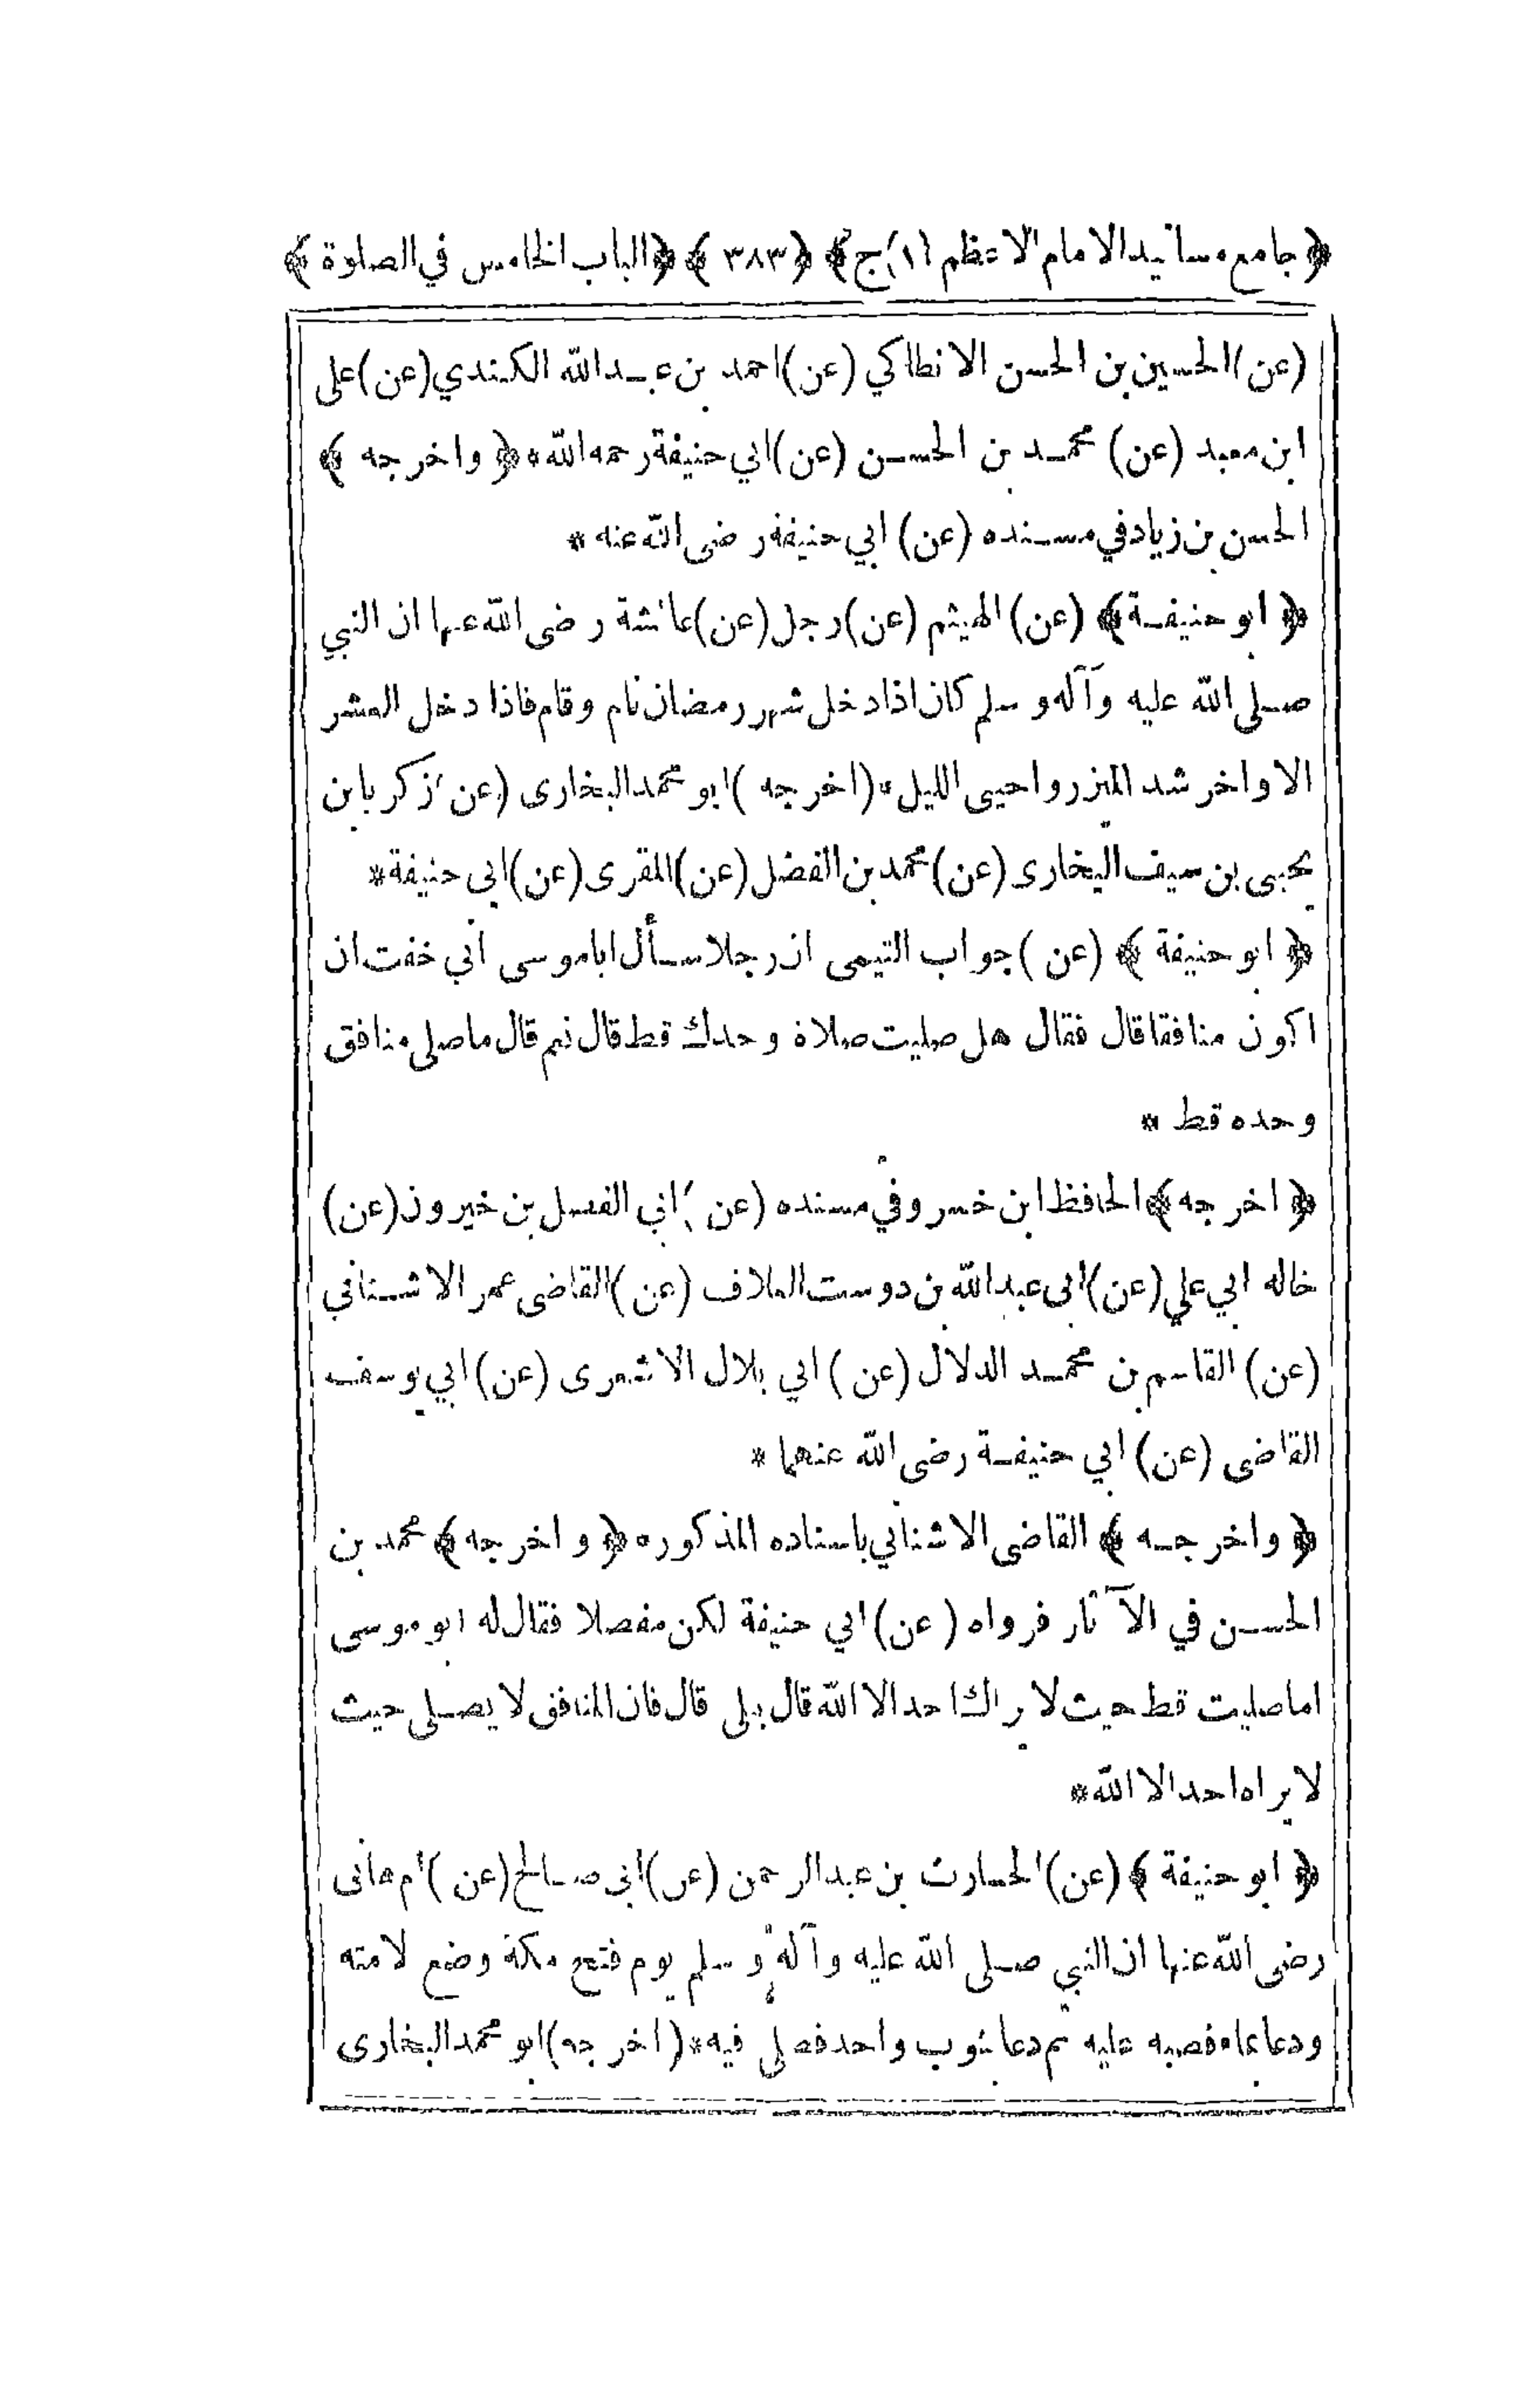 ﴿ جامع مسانيد الامام الاعظم (١) ج ﴾ ﴿ ٣٨٣ ﴾ ﴿ الباب الخامس في الصلوة ﴾
(عن) الحسين بن الحسن الانطاكي (عن) احمد بن عبد الله الكندي (عن) على
ابن معبد (عن) محمد بن الحسن (عن) ابي حنيفة رحمه الله * ﴿ واخرجه ﴾
الحسن بن زياد في مسنده (عن) ابي حنيفة رضى الله عنه *
﴿ ابو حنيفة ﴾ (عن) الهيثم (عن) رجل (عن) عائشة رضى الله عنها ان النبي
صلى الله عليه وآله وسلم كان اذا دخل شهر رمضان نام وقام فاذا دخل العشر
الاواخر شد المئزر واحيى الليل * (اخرجه) ابو محمد البخارى (عن) زكريا بن
يحيى بن سيف البخارى (عن) محمد بن الفضل (عن) المقرى (عن) ابى حنيفة *
﴿ ابو حنيفة ﴾ (عن) جواب التيمى ان رجلا سأل ابا موسى انى خفت ان
اكون منافقا قال فقال هل صليت صلاة وحدك قط قال نعم قال ما صلى منافق
وحده قط *
﴿ اخرجه ﴾ الحافظ ابن خسرو في مسنده (عن) ابي الفضل بن خيرون (عن)
خاله ابي علي (عن) ابى عبد الله بن دوست العلاف (عن) القاضى عمر الاشناني
(عن) القاسم بن محمد الدلال (عن) ابي بلال الاشعرى (عن) ابي يوسف
القاضى (عن) ابي حنيفة رضى الله عنهما *
﴿ واخرجه ﴾ القاضى الاشناني باسناده المذكوره ﴿ واخرجه ﴾ محمد بن
الحسن في الآثار فرواه (عن) ابي حنيفة لكن مفصلا فقال له ابو موسى
اما صليت قط حيث لا يراك احد الا الله قال بلى قال فان المنافق لا يصلى حيث
لا يراه احد الا الله *
﴿ ابو حنيفة ﴾ (عن) الحارث بن عبد الرحمن (عن) ابى صالح (عن) ام هانى
رضى الله عنها ان النبي صلى الله عليه وآله وسلم يوم فتح مكة وضع لامته
ودعا بماء فصبه عليه ثم دعا بثوب واحد فصلى فيه * (اخرجه) ابو محمد البخارى